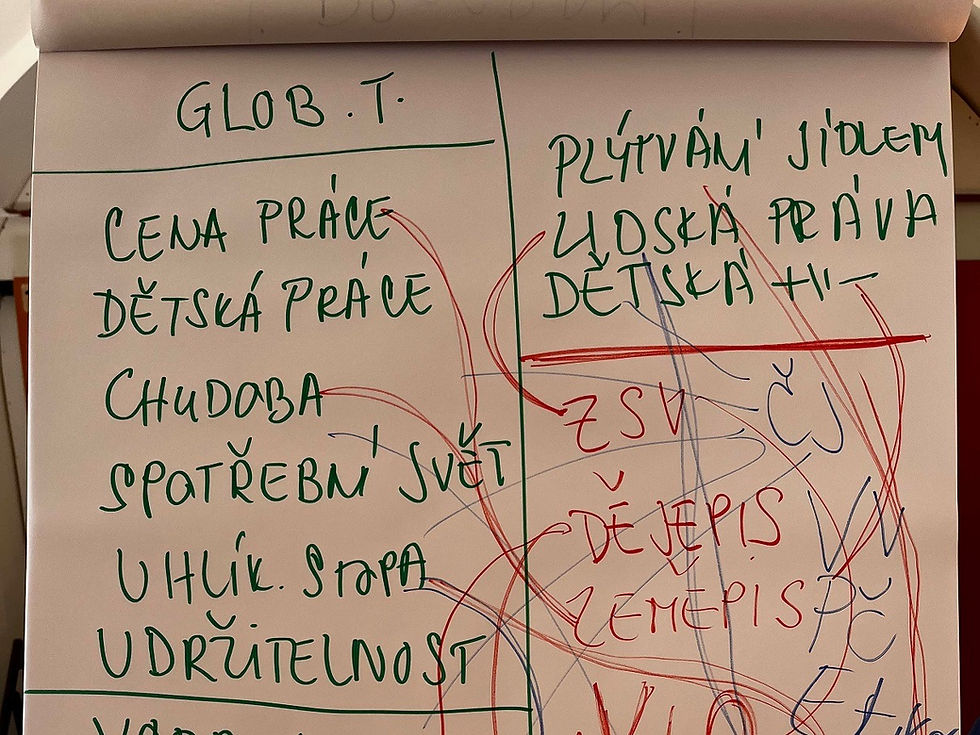 GLOB. T.
CENA PRÁCE
DĚTSKÁ PRÁCE
CHUDOBA
SPOTŘEBNÍ SVĚT
UHLÍK. STOPA
UDRŽITELNOST
PLÝTVÁNÍ JÍDLEM
LIDSKÁ PRÁVA
DĚTSKÁ -II-
ZSV
ČJ
DĚJEPIS
VV
ZEMĚPIS
PČ